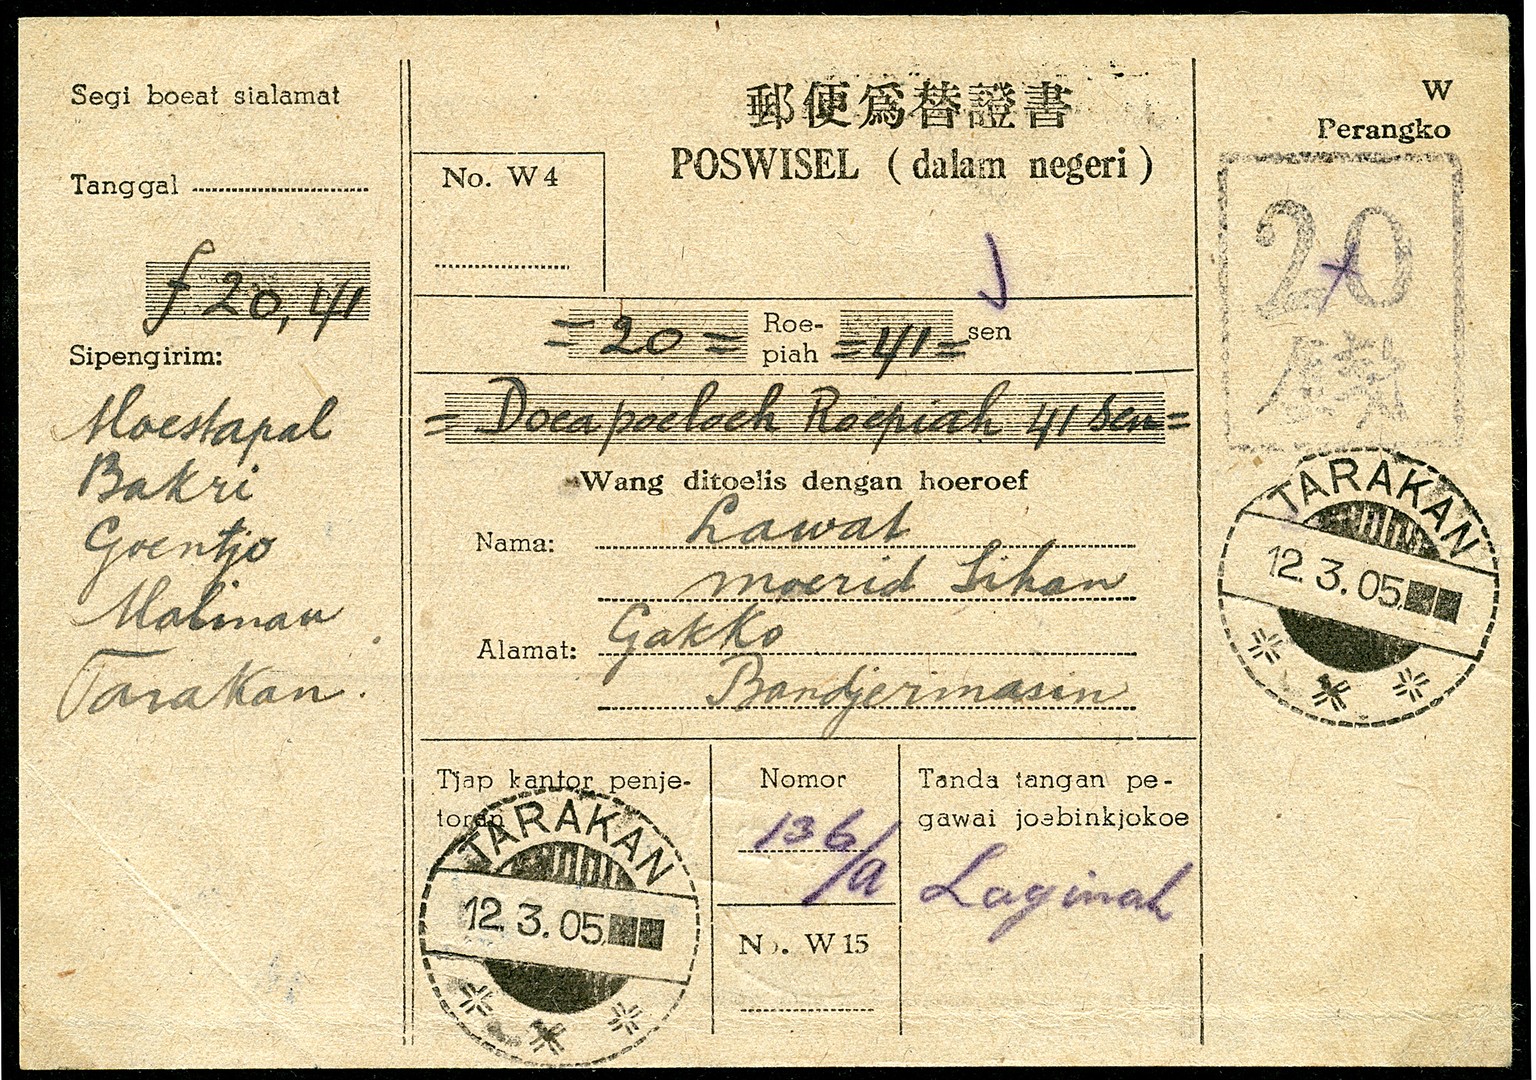 Segi boeat sialamat
Tanggal
f 20,41
Sipengirim:
Moestapal
Bakri
Goentjo
Malinau
Tarakan.
郵便爲替證書
POSWISEL (dalam negeri)
No. W4
= 20 = Roe-piah = 41 = sen
= Doea poeloeh Roepiah 41 sen =
Wang ditoelis dengan hoeroef
Nama: Lawat
moerid Sihan
Alamat: Gakko
Bandjermasin
Tjap kantor penje-
toran
TARAKAN
12.3.05
Nomor
136/a
No. W15
Tanda tangan pe-
gawai joebinkjokoe
Laginah
W
Perangko
20
TARAKAN
12.3.05